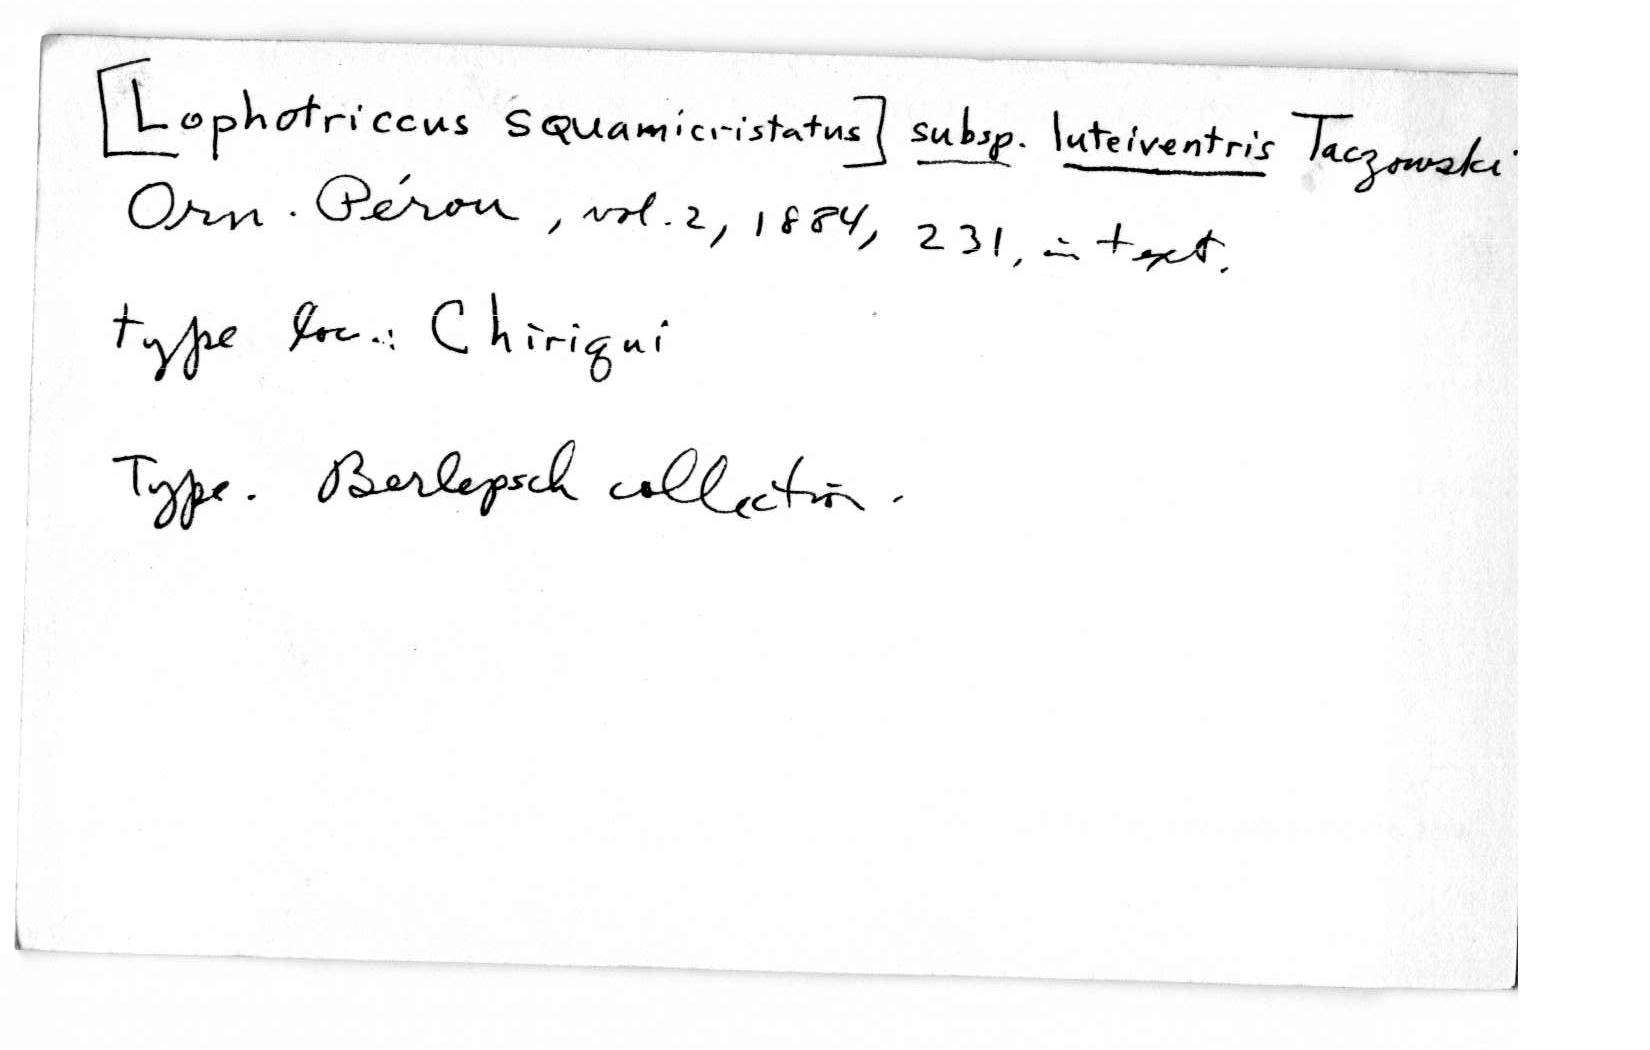 [Lophotriccus squamicristatus] subsp. luteiventris Taczowski
Orn. Pérou, vol. 2, 1884, 231, in text.
type loc.: Chiriqui
Type. Berlepsch collection.